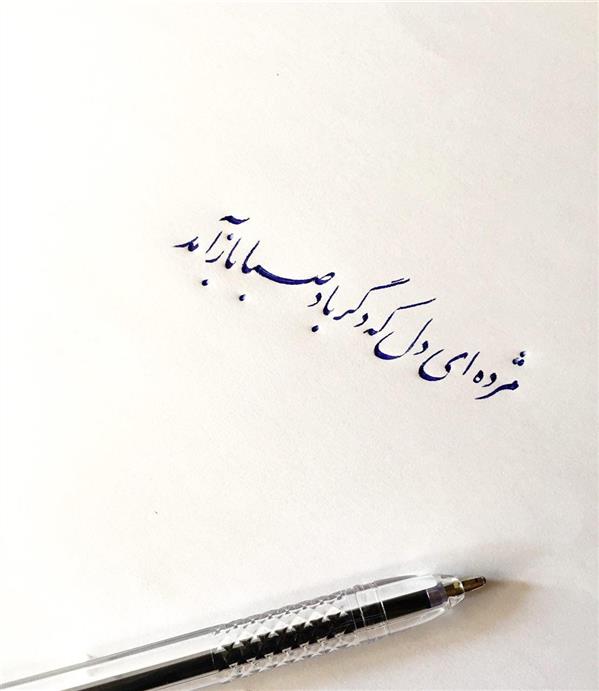 مژده ای دل که دگر باد صبا بازآمد